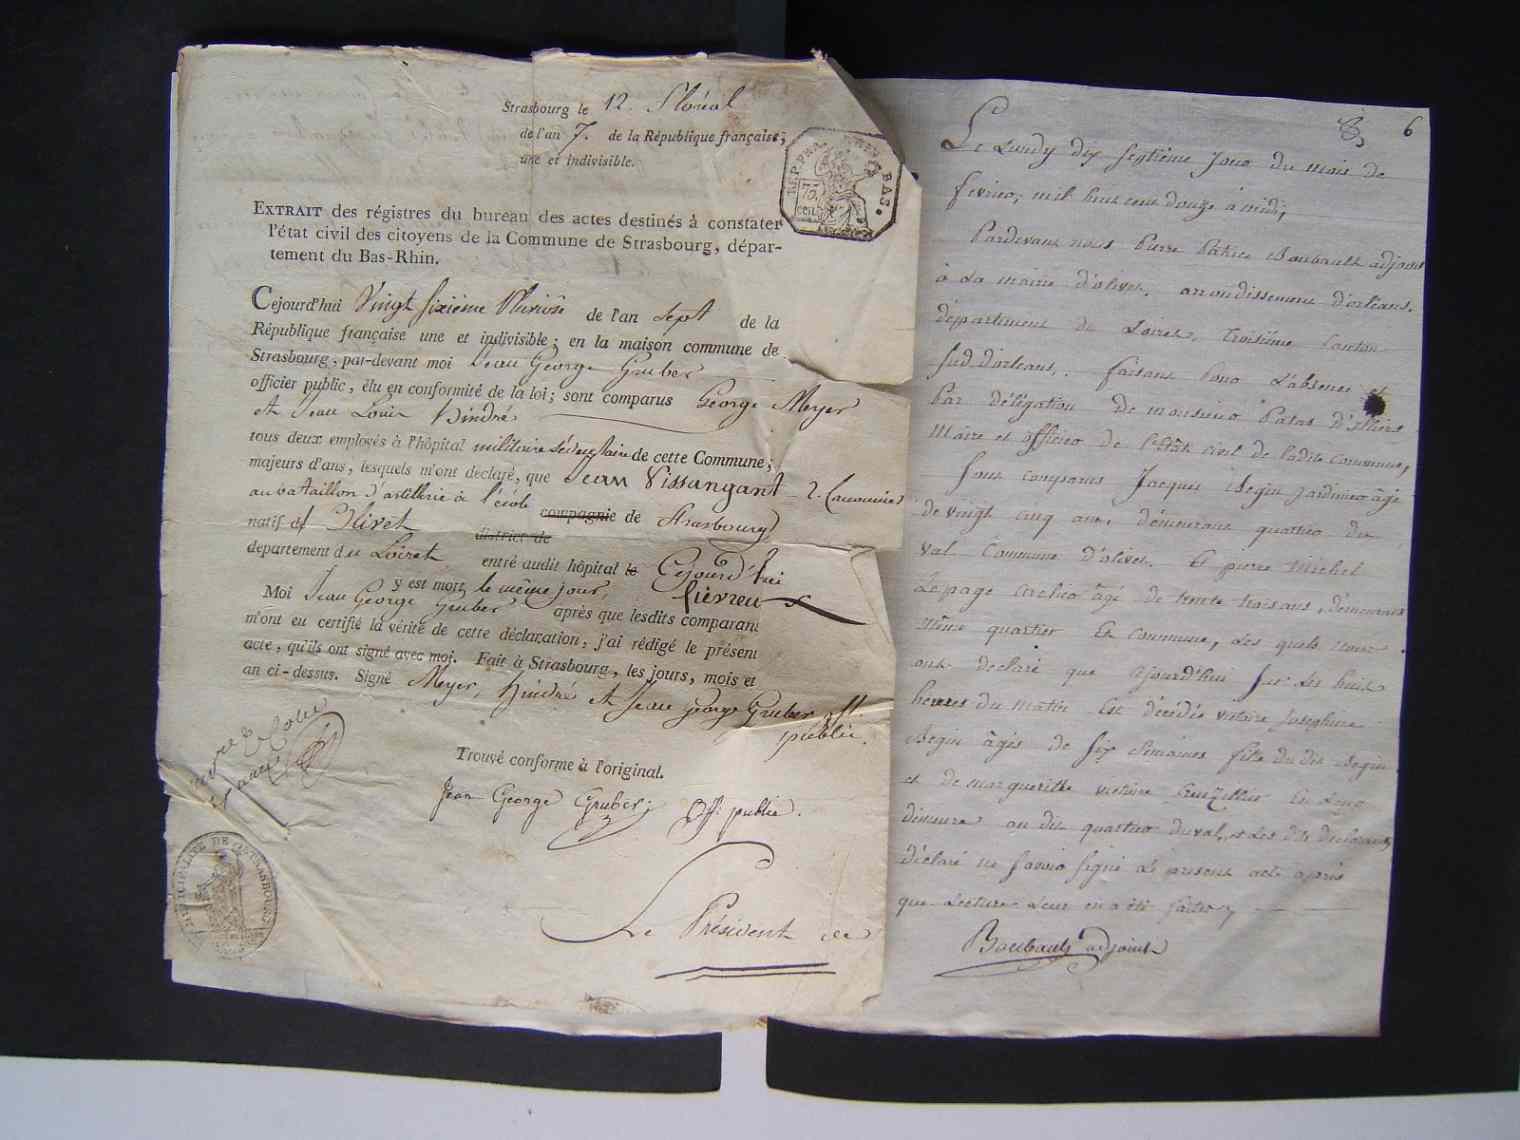 Strasbourg le 12. Floréal
de l'an 7. de la République française;
une et indivisible.
REP. FRA.
BAS.
75.
cent
EXTRAIT des régistres du bureau des actes destinés à constater
l'état civil des citoyens de la Commune de Strasbourg, dépar-
tement du Bas-Rhin.
Cejourd'hui Vingt sixième Pluviôse de l'an sept de la
République française une et indivisible; en la maison commune de
Strasbourg, par-devant moi Jean George Gruber
officier public, élu en conformité de la loi; sont comparus George Meyer
et Jean Louis Hindré
tous deux employés à l'hôpital militaire sédentaire de cette Commune;
majeurs d'ans, lesquels m'ont declaré, que Jean Vissangant 2. Canonnier
au bataillon d'artillerie à l'école compagnie de Strasbourg
natif d' Olivet district de
departement du Loiret entré audit hôpital le Cejourd'hui
y est mort le même jour, fievreux
Moi Jean George Gruber après que lesdits comparans
m'ont eu certifié la vérité de cette déclaration, j'ai rédigé le présent
acte, qu'ils ont signé avec moi. Fait à Strasbourg, les jours, mois et
an ci-dessus. Signé Meyer, Hindré et Jean George Gruber off.
public.
Trouvé conforme à l'original.
Jean George Gruber; Off. public.
MUNICIPALITÉ DE STRASBOURG
Le Président de
6
Le Lundy dix septième jour du mois de
fevrier, mil huit cent douze à midi,
Pardevant nous Pierre Patrice Boubault adjoint
à La mairie d'olivet, arrondissement d'orléans,
département du Loiret, troisième Canton
sud d'orléans, faisant pour L'absence et
Par délégation de monsieur Patas d'illiers
Maire et officier de l'état civil de ladite commune,
sont comparus Jacques Begin jardinier âgé
de vingt cinq ans, démeurant quartier du
val Commune d'olivet. Et pierre Michel
Lepage archer âgé de trente trois ans, démeurant
même quartier Et commune, Les quels nous
ont declaré que cejourd'hui sur Les huit
heures du matin Est décédée victoire josephine
Begin âgée de six semaines fille du dit Begin
et de margueritte victoire Creuzillet En Leur
demeure au dit quartier du val, et Les dits declarants
déclaré ne savoir signer Le present acte après
que Lecture Leur en a été faite
Boubault adjoint